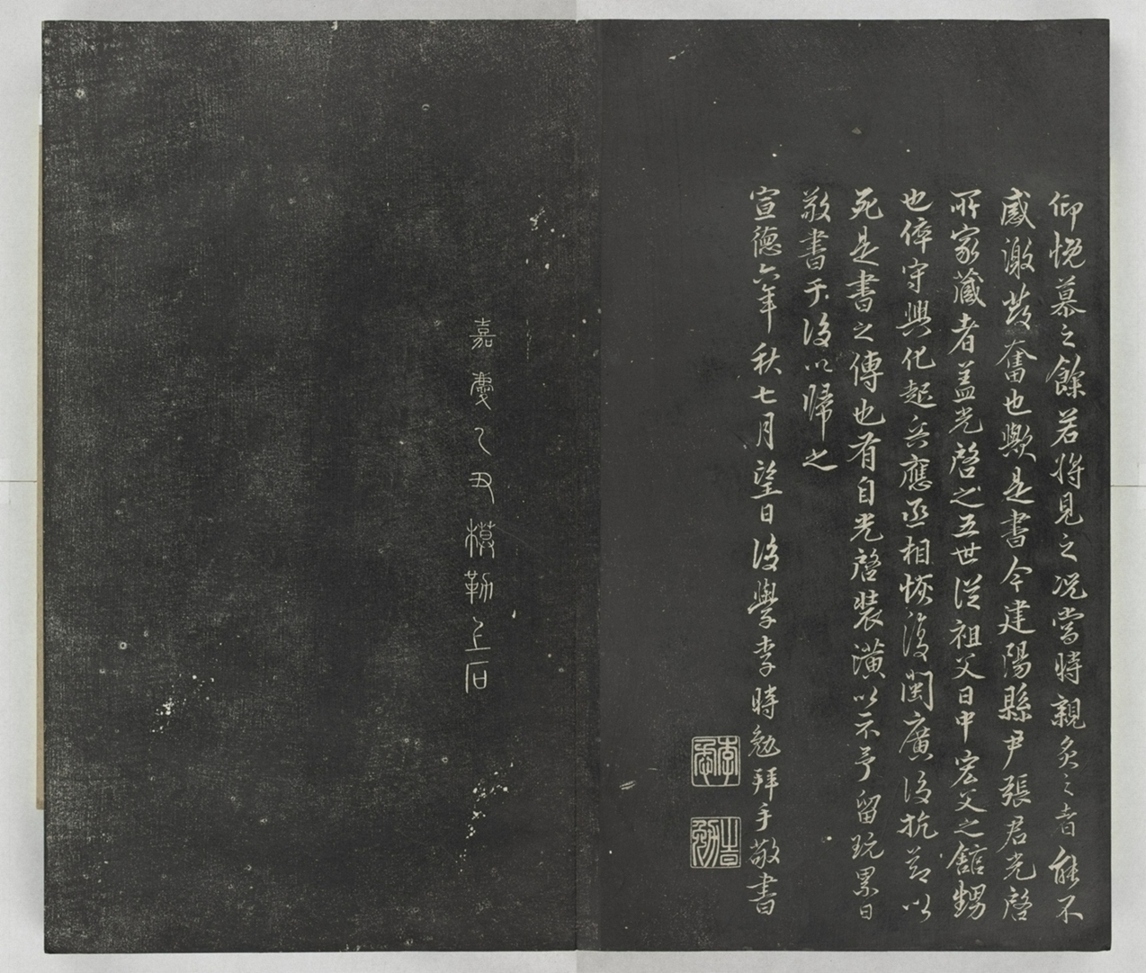 仰悅慕之餘若將見之况當時親炙之者能不
感激發奮也歟是書今建陽縣尹張君光啓
所家藏者盖光啓之五世從祖父日中宏父之舘甥
也倅守興化起兵應丞相恢復閩廣後抗節以
死是書之傳也有自光啓装潢以示予留玩累日
敬書于後以歸之
宣德六年秋七月望日後學李時勉拜手敬書
嘉慶乙丑模勒上石